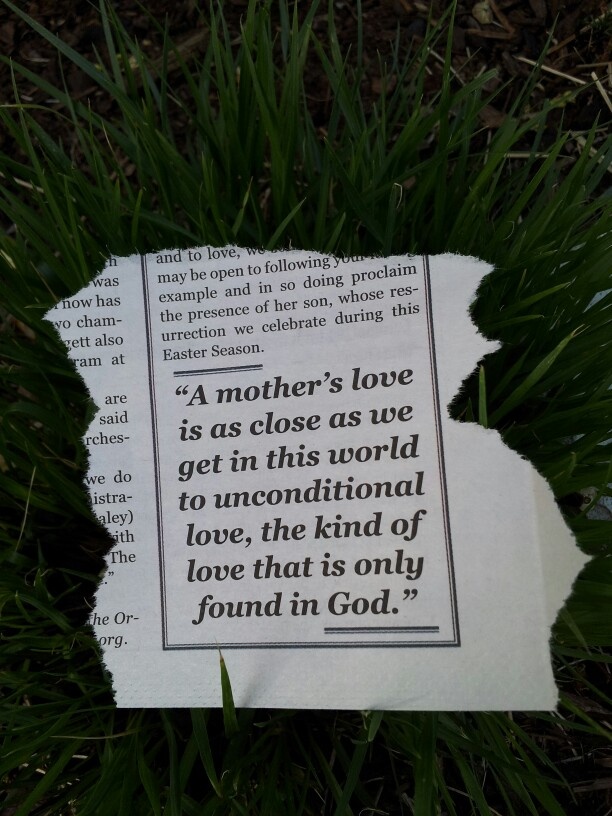 was
now has
cham-
gett also
ram at
are
said
rches-
we do
istra-
aley)
ith
The
."
he Or-
org.
and to love, we
may be open to following your
example and in so doing proclaim
the presence of her son, whose res-
urrection we celebrate during this
Easter Season.
“A mother’s love
is as close as we
get in this world
to unconditional
love, the kind of
love that is only
found in God.”